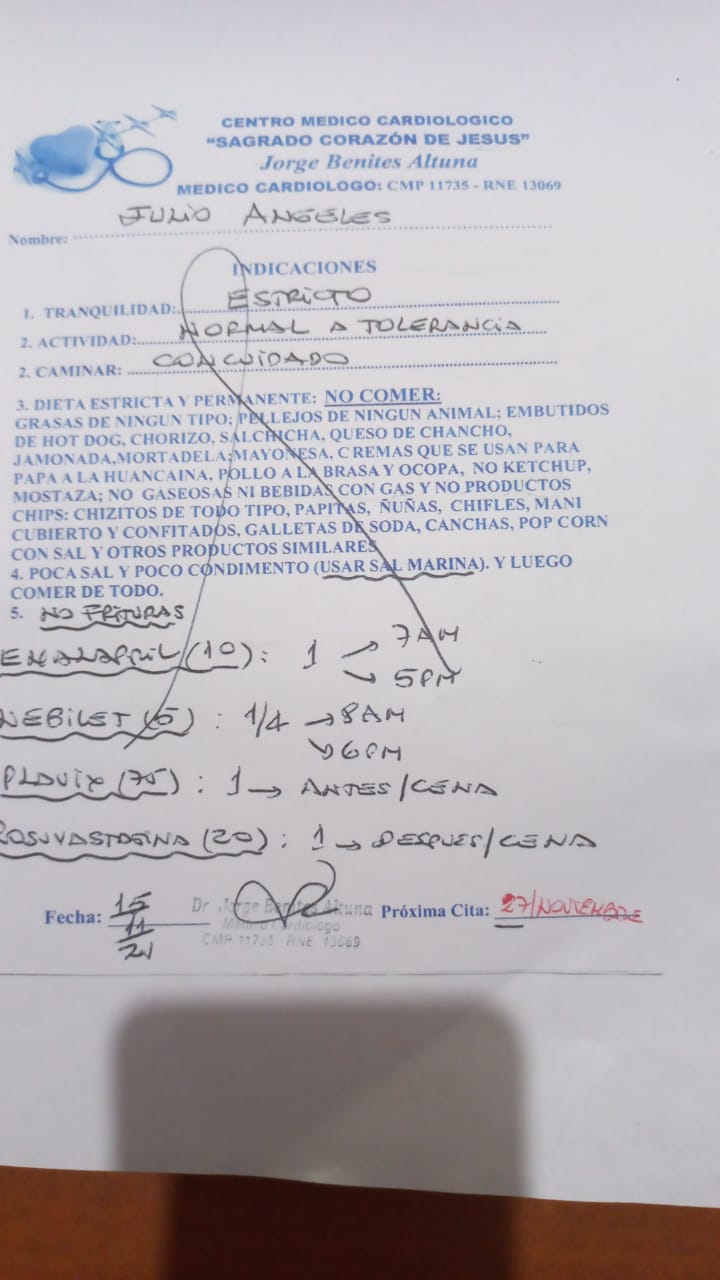 CENTRO MEDICO CARDIOLOGICO
“SAGRADO CORAZÓN DE JESUS”
Jorge Benites Altuna
MEDICO CARDIOLOGO: CMP 11735 - RNE 13069
Nombre: JULIO ANGELES
INDICACIONES
1. TRANQUILIDAD: ESTRICTO
2. ACTIVIDAD: NORMAL A TOLERANCIA
2. CAMINAR: CON CUIDADO
3. DIETA ESTRICTA Y PERMANENTE: NO COMER:
GRASAS DE NINGUN TIPO; PELLEJOS DE NINGUN ANIMAL; EMBUTIDOS
DE HOT DOG, CHORIZO, SALCHICHA, QUESO DE CHANCHO,
JAMONADA,MORTADELA;MAYONESA, CREMAS QUE SE USAN PARA
PAPA A LA HUANCAINA, POLLO A LA BRASA Y OCOPA, NO KETCHUP,
MOSTAZA; NO GASEOSAS NI BEBIDAS CON GAS Y NO PRODUCTOS
CHIPS: CHIZITOS DE TODO TIPO, PAPITAS, ÑUÑAS, CHIFLES, MANI
CUBIERTO Y CONFITADOS, GALLETAS DE SODA, CANCHAS, POP CORN
CON SAL Y OTROS PRODUCTOS SIMILARES
4. POCA SAL Y POCO CONDIMENTO (USAR SAL MARINA). Y LUEGO
COMER DE TODO.
5. NO FRITURAS
ENALAPRIL (10): 1 → 7AM
↘ 5PM
NEBILET (5): 1/4 → 8AM
↘ 6PM
PLAVIX (75): 1 → ANTES/CENA
ROSUVASTATINA (20): 1 → DESPUES/CENA
Fecha: 15/11/21 Próxima Cita: 27/NOVIEMBRE
Dr Jorge Benites Altuna
Médico Cardiologo
CMP 11735 RNE 13069